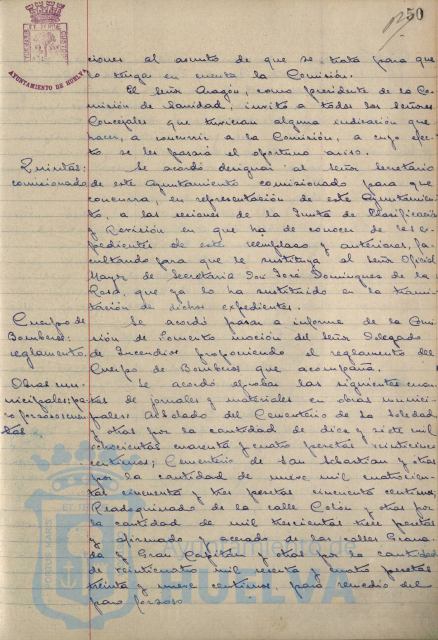 50
AYUNTAMIENTO DE HUELVA
ciones al asunto de que se trata para que
lo tenga en cuenta la Comisión.
El Señor Aragón, como presidente de la Co-
misión de Sanidad, invitó a todos los Señores
Concejales que tuvieran alguna indicación que
hacer, a concurrir a la Comisión, a cuyo efec-
to se les pasará el oportuno aviso.
Quintas:
comisionado
Se acordó designar al Señor Secretario
de este Ayuntamiento comisionado para que
concurra, en representación de este Ayuntamien-
to, a las sesiones de la Junta de Clasificación
y Revisión en que ha de conocer de los ex-
pedientes de este reemplazo y anteriores, fa-
cultando para que le sustituya al Señor Oficial
Mayor de Secretaría Don José Domínguez de la
Rosa, que ya lo ha sustituido en la trami-
tación de dichos expedientes.
Cuerpo de
Bomberos:
reglamento.
Se acordó pasar a informe de la Comi-
sión de Fomento moción del Señor Delegado
de Incendios proponiendo el reglamento del
Cuerpo de Bomberos que acompaña.
Obras mu-
nicipales: pa-
ro forzoso:
Se acordó aprobar las siguientes cuen-
tas de jornales y materiales en obras munici-
pales: Adoblado del Cementerio de la Soledad
y otras por la cantidad de diez y siete mil
ochocientas cuarenta y cuatro pesetas veinticinco
centimos; Cementerio de San Sebastian y otras
por la cantidad de nueve mil cuatrocien-
tas cincuenta y tres pesetas cincuenta centimos;
Readoquinado de la calle Colón y otras por
la cantidad de mil trescientas trece pesetas
y afirmado y acerado de las calles Grana-
da y Gran Capitán y otras por la cantidad
de veinticuatro mil sesenta y cuatro pesetas
treinta y nueve centimos, para remedio del
paro forzoso.
Ayuntamiento de
HUELVA
PORTUS MARIS